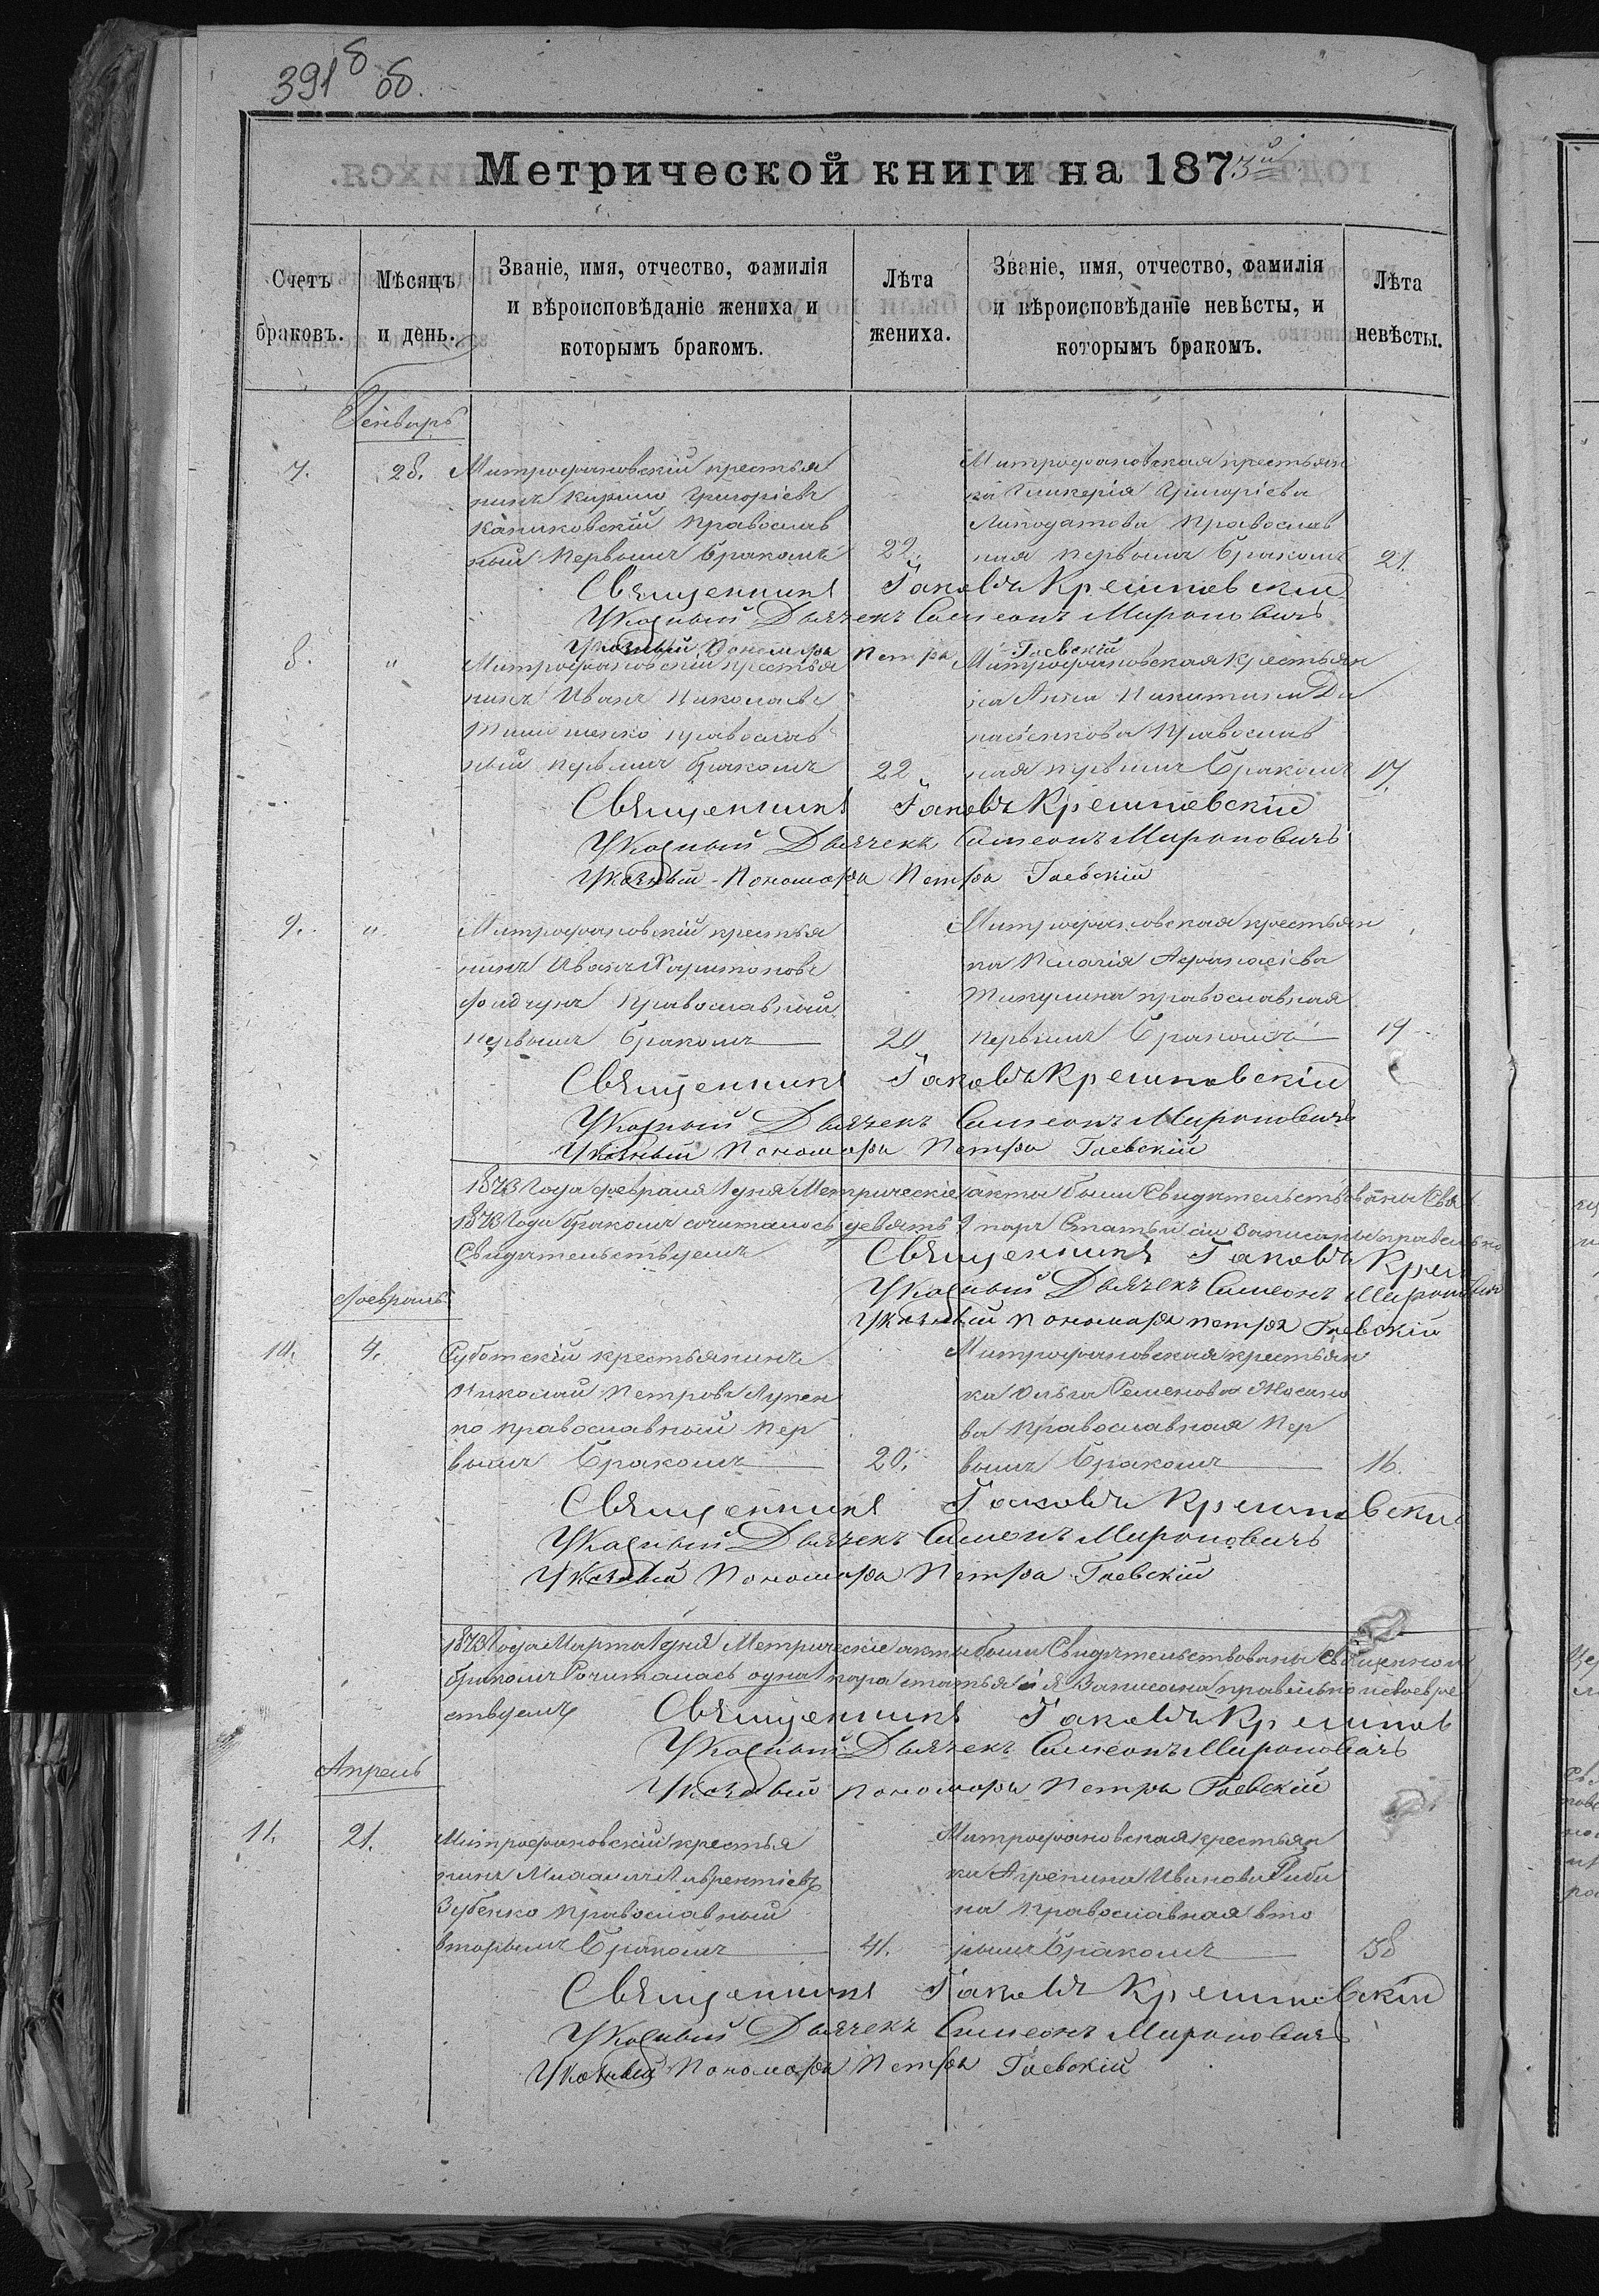 391 об.
Метрической книги на 1873й
Счетъ браковъ.
Мѣсяцъ и день.
Званіе, имя, отчество, фамилія и вѣроисповѣданіе жениха и которымъ бракомъ.
Лѣта жениха.
Званіе, имя, отчество, фамилія и вѣроисповѣданіе невѣсты, и которымъ бракомъ.
Лѣта невѣсты.
Генварь
7.
28.
Митрофановскій крестья
нинъ Кирило Григоріевъ
православ
ный первымъ бракомъ
22.
Митрофановская крестьян
ка Гликерія Григоріева
Липодатова православ
ная первымъ бракомъ
21.
Священникъ Іаковъ Кремповскій
Указный Дьячекъ Симеонъ Мироновичъ
Указный Пономарь Петръ Гаевскій
8.
"
Митрофановскій крестья
нинъ Иванъ Николаевъ
православ
ный первымъ бракомъ
22
Митрофановская крестьян
ка Анна Никитина
православ
ная первымъ бракомъ
17.
Священникъ Іаковъ Кремповскій
Указный Дьячекъ Симеонъ Мироновичъ
Указный Пономарь Петръ Гаевскій
9.
"
Митрофановскій крестья
нинъ Иванъ Харитоновъ
православный
первымъ бракомъ
20
Митрофановская крестьян
ка Пелагія Афанасіева
Микулина православная
первымъ бракомъ
19
Священникъ Іаковъ Кремповскій
Указный Дьячекъ Симеонъ Мироновичъ
Указный Пономарь Петръ Гаевскій
1873 Года февраля 1 дня Метрическіе акты были Свидѣтельствованы
1873 Года бракомъ сочиталось девять 9 паръ Статьи сіи Записаны правильно
Свидѣтельствуемъ
Священникъ Іаковъ Крем
Указный Дьячекъ Симеонъ Мироновичъ
Указный Пономарь Петръ Гаевскій
Февраль
10.
4.
Суботскій крестьянинъ
Николай Петровъ Лупен
ко православный пер
вымъ бракомъ
20.
Митрофановская крестьян
ка Ольга Семенова Носано
ва православная пер
вымъ бракомъ
16.
Священникъ Іаковъ Кремповскій
Указный Дьячекъ Симеонъ Мироновичъ
Указный Пономарь Петръ Гаевскій
1873 Года Марта 1 дня Метрическіе акты были Свидѣтельствованы Священно
бракомъ Сочиталась одна пара статья сія Записана правильно и своевре
ствуемъ
Священникъ Іаковъ Кремпов
Указный Дьячекъ Симеонъ Мироновичъ
Указный Пономарь Петръ Гаевскій
Апрель
11.
21.
Митрофановскій крестья
нинъ Михаилъ Лаврентіевъ
Зубенко православный
вторымъ бракомъ
41.
Митрофановская крестьян
ка Агрепина Иванова Гиби
на православная вто
рымъ бракомъ
38
Священникъ Іаковъ Кремповскій
Указный Дьячекъ Симеонъ Мироновичъ
Указный Пономарь Петръ Гаевскій